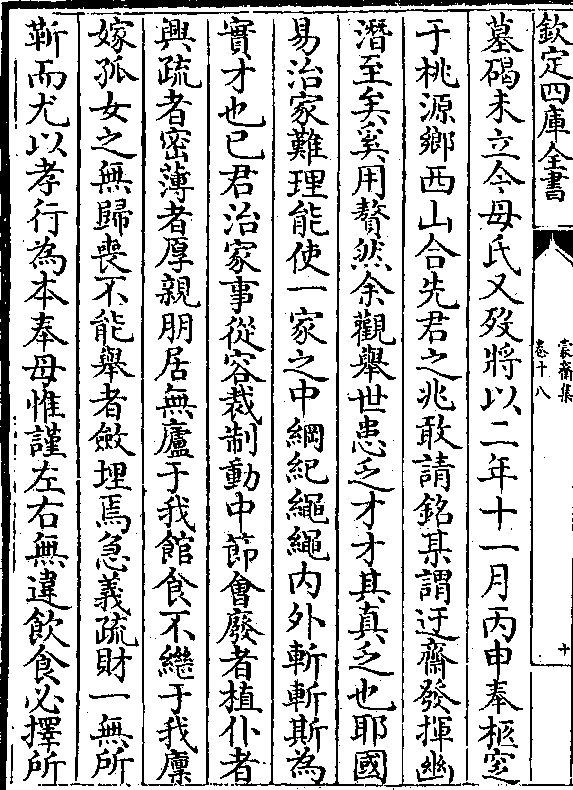 欽定四庫全書
蒙齋集
卷十八
十
墓碣未立今母氏又歿將以二年十一月丙申奉柩窆
于桃源鄉西山合先君之兆敢請銘某謂迂齋發揮幽
潛至矣奚用贅然余觀舉世患乏才才其真乏也耶國
易治家難理能使一家之中綱紀繩繩內外斬斬斯為
實才也已君治家事從容裁制動中節會廢者植仆者
興疏者密薄者厚親朋居無廬于我館食不繼于我廩
嫁孤女之無歸喪不能舉者斂埋焉急義疏財一無所
靳而尤以孝行為本奉母惟謹左右無違飲食必擇所